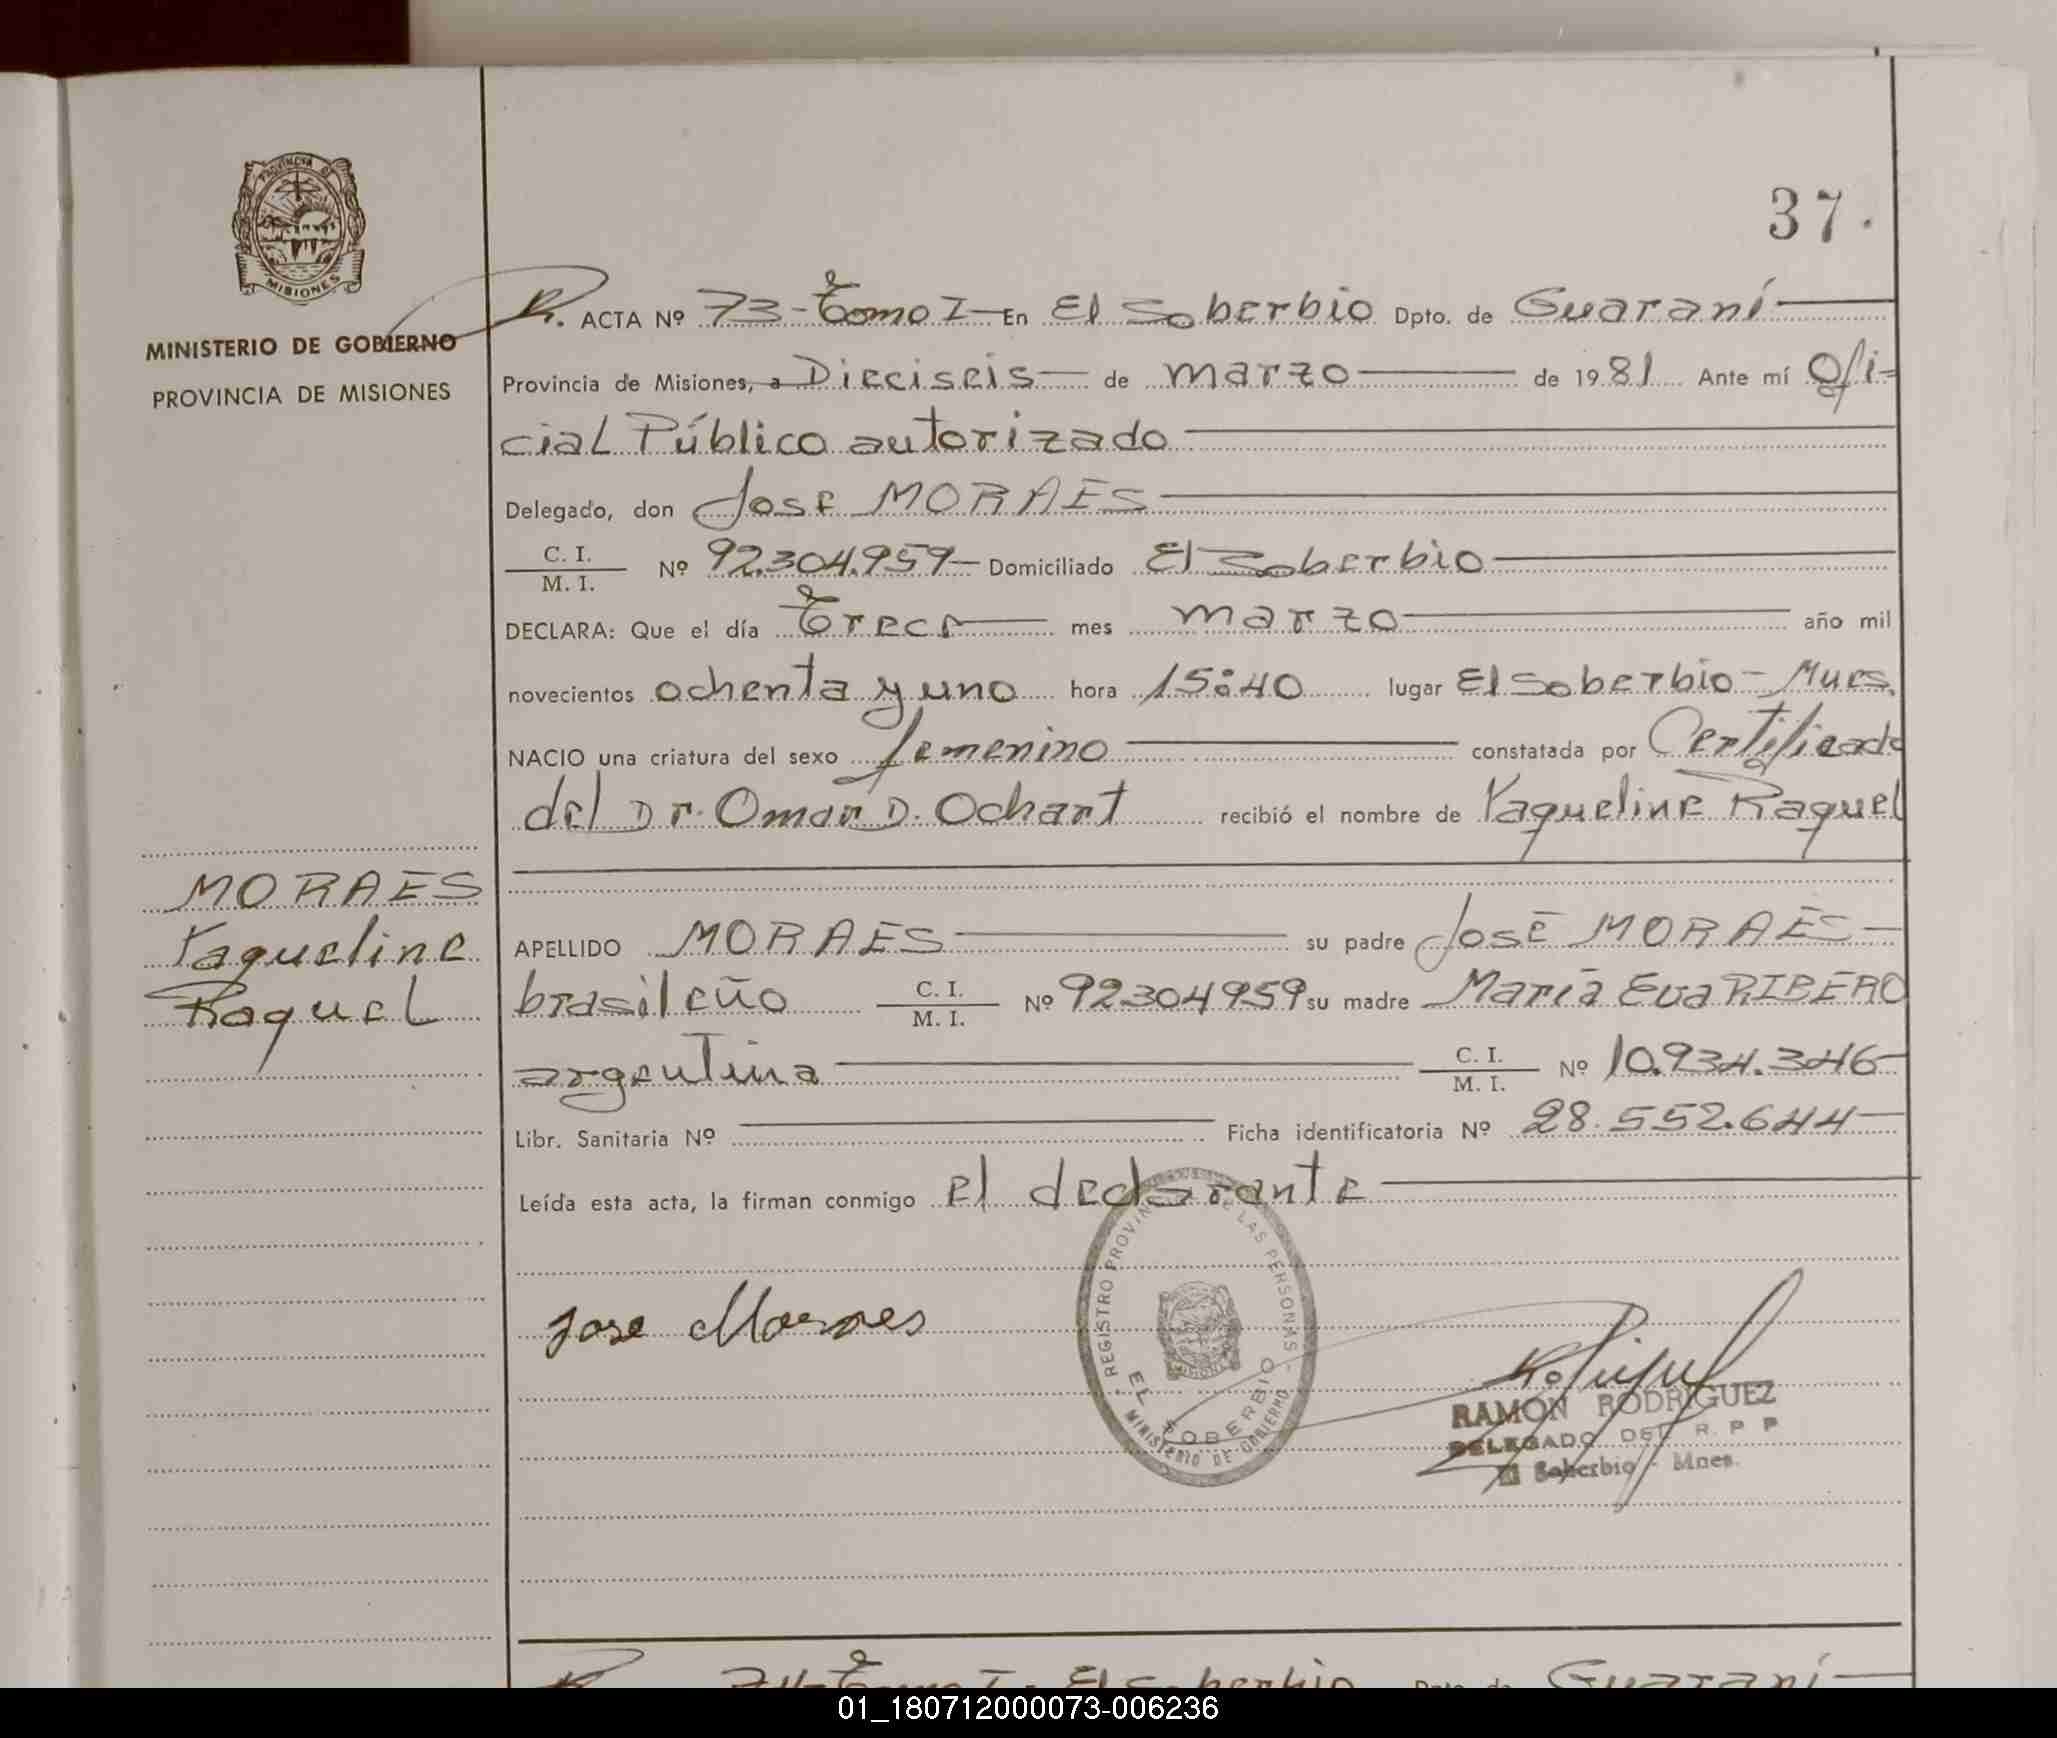 37.
PROVINCIA DE
MISIONES
MINISTERIO DE GOBIERNO
PROVINCIA DE MISIONES
R. ACTA Nº 73 - Tomo I - En El Soberbio Dpto. de Guaraní
Provincia de Misiones, a Dieciseis de marzo de 1981 Ante mí Ofi-
cial Público autorizado
Delegado, don José MORAES
C. I.
M. I. Nº 92.304.959 - Domiciliado El Soberbio
DECLARA: Que el día Trece mes marzo año mil
novecientos ochenta y uno hora 15:40 lugar El Soberbio - Mnes.
NACIO una criatura del sexo femenino constatada por Certificado
del Dr. Omar D. Ochart recibió el nombre de Yaqueline Raquel
MORAES
Yaqueline
Raquel
APELLIDO MORAES su padre José MORAES
brasileño C. I.
M. I. Nº 92304959 su madre María Eva RIBERO
argentina C. I.
M. I. Nº 10.934.346
Libr. Sanitaria Nº Ficha identificatoria Nº 28.552.644
Leída esta acta, la firman conmigo el declarante
REGISTRO PROVINCIAL DE LAS PERSONAS
EL SOBERBIO
MINISTERIO DE GOBIERNO
MISIONES
Jose Moraes
RAMON RODRIGUEZ
DELEGADO DEL R. P. P.
El Soberbio - Mnes.
R. 74 - Tomo I - El Soberbio Dpto. de Guaraní
01_180712000073-006236